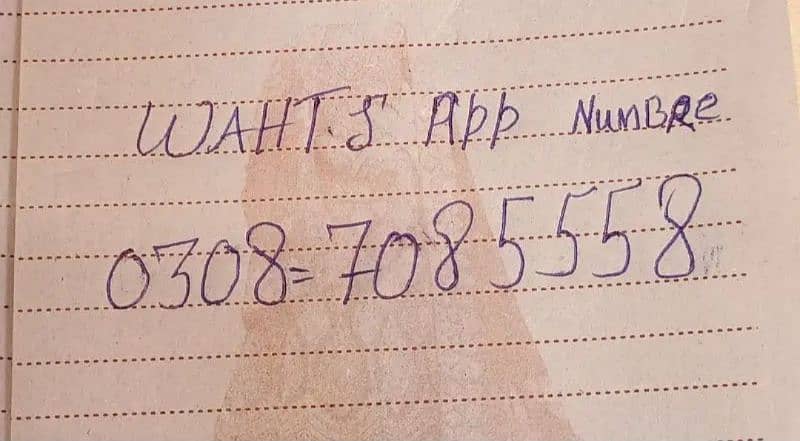 WAHT.S App NumBRe
0308=7085558